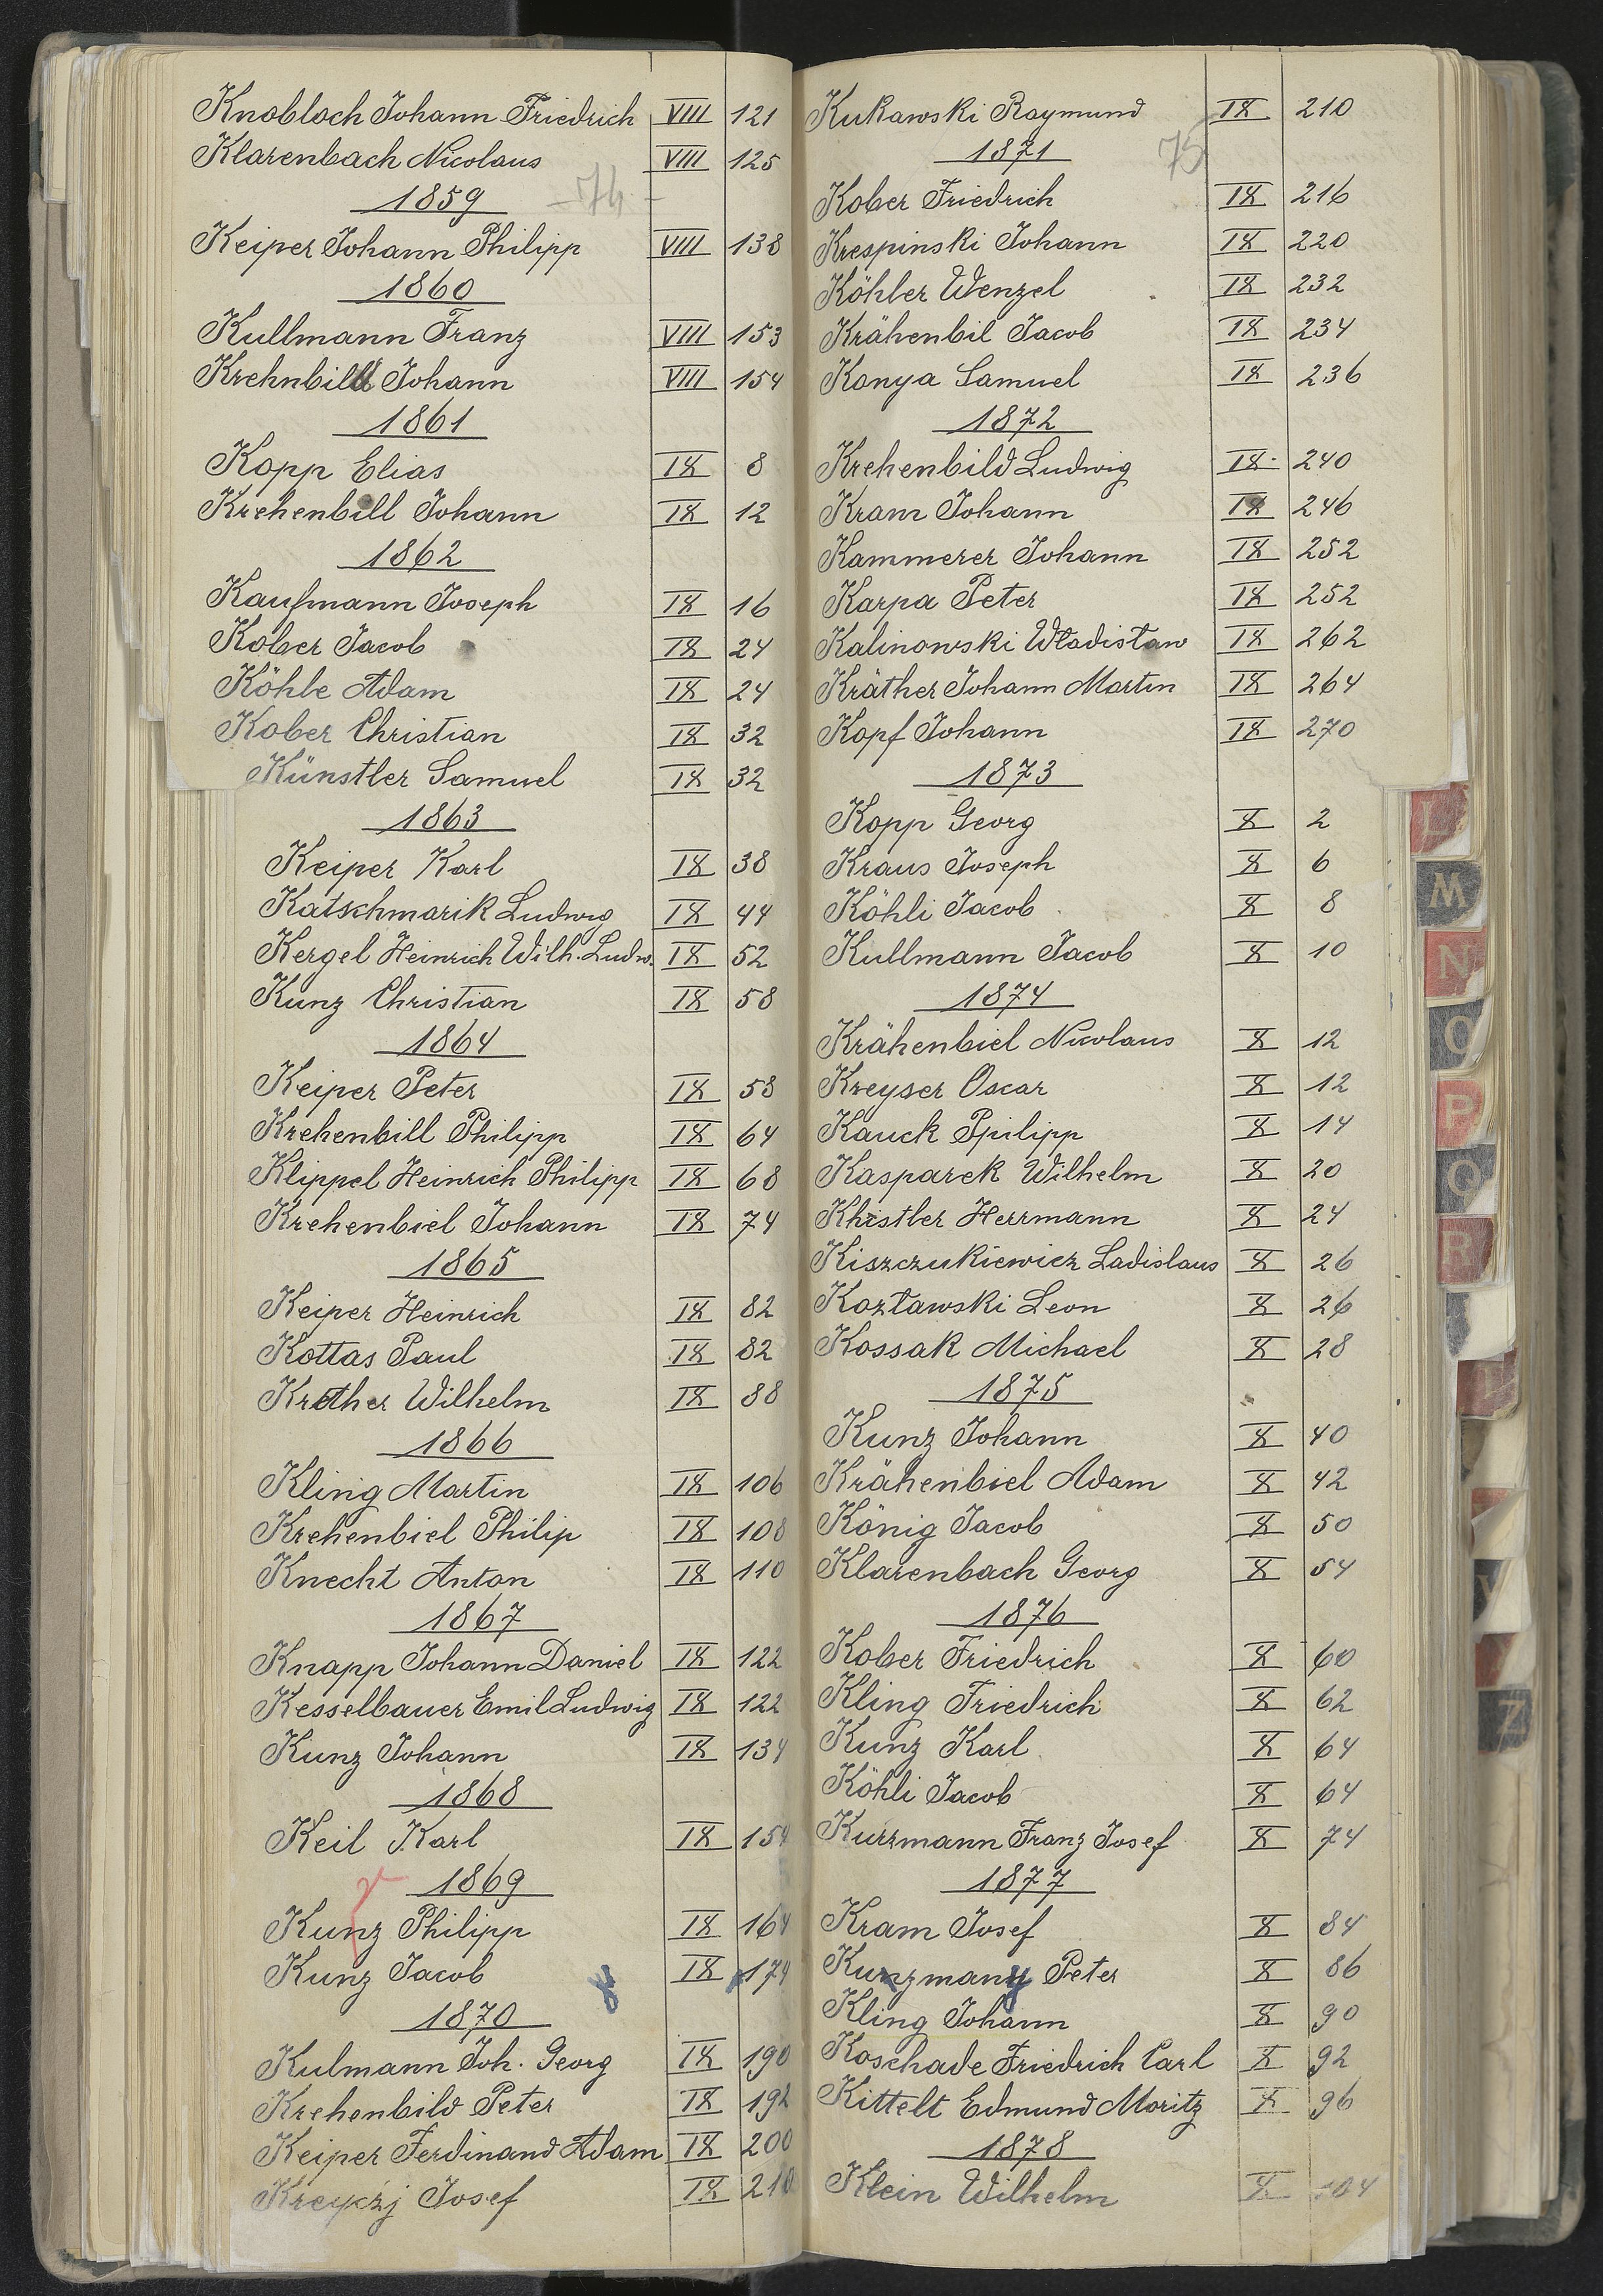 Knobloch Johann Friedrich VIII 121
Klarenbach Nicolaus VIII 125
1859 74
Keiper Johann Philipp VIII 138
1860
Kullmann Franz VIII 153
Krehnbill Johann VIII 154
1861
Kopp Elias IX 8
Krehenbill Johann IX 12
1862
Kaufmann Joseph IX 16
Kober Jacob IX 24
Köhle Adam IX 24
Kober Christian IX 32
Künstler Samuel IX 32
1863
Keiper Karl IX 38
Katschmarik Ludwig IX 44
Kergel Heinrich Wilh. Ludw. IX 52
Kunz Christian IX 58
1864
Keiper Peter IX 58
Krehenbill Philipp IX 64
Klippel Heinrich Philipp IX 68
Krehenbiel Johann IX 74
1865
Keiper Heinrich IX 82
Kottas Paul IX 82
Krether Wilhelm IX 88
1866
Kling Martin IX 106
Krehenbiel Philip IX 108
Knecht Anton IX 110
1867
Knapp Johann Daniel IX 122
Kesselbauer Emil Ludwig IX 122
Kunz Johann IX 134
1868
Keil Karl IX 154
1869
Kunz Philipp IX 164
Kunz Jacob IX 174
1870
Kulmann Joh. Georg IX 190
Krehenbild Peter IX 192
Keiper Ferdinand Adam IX 200
Kreyczj Josef IX 210
Kukawski Raymund IX 210
1871 75
Kober Friedrich IX 216
Krespinski Johann IX 220
Köhler Wenzel IX 232
Krähenbil Jacob IX 234
Konya Samuel IX 236
1872
Krehenbild Ludwig IX 240
Kram Johann IX 246
Kammerer Johann IX 252
Karpa Peter IX 252
Kalinowski Władisław IX 262
Kräther Johann Martin IX 264
Kopf Johann IX 270
1873
Kopp Georg X 2
Kraus Joseph X 6
Köhli Jacob X 8
Kullmann Jacob X 10
1874
Krähenbiel Nicolaus X 12
Kreyser Oscar X 12
Kauck Ppilipp X 14
Kasparek Wilhelm X 20
Khistler Herrmann X 24
Kiszczukiewicz Ladislaus X 26
Kozławski Leon X 26
Kossak Michael X 28
1875
Kunz Johann X 40
Krähenbiel Adam X 42
König Jacob X 50
Klarenbach Georg X 54
1876
Kober Friedrich X 60
Kling Friedrich X 62
Kunz Karl X 64
Köhli Jacob X 64
Kurzmann Franz Josef X 74
1877
Kram Josef X 84
Kunzmann Peter X 86
Kling Johann X 90
Koschade Friedrich Carl X 92
Kittelt Edmund Moritz X 96
1878
Klein Wilhelm X 104
L
M
N
O
P
Q
R
V
Z